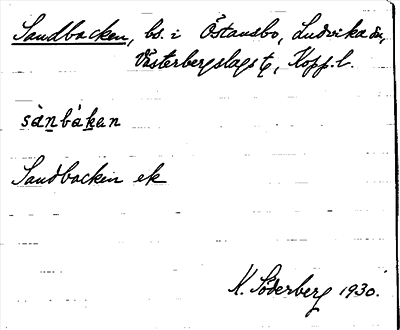 Sandbacken, bs. i Östansbo, Ludvika sn,
Västerbergslags t., Kopp. l.
sànbákan
Sandbacken ek
K. Söderberg 1930.